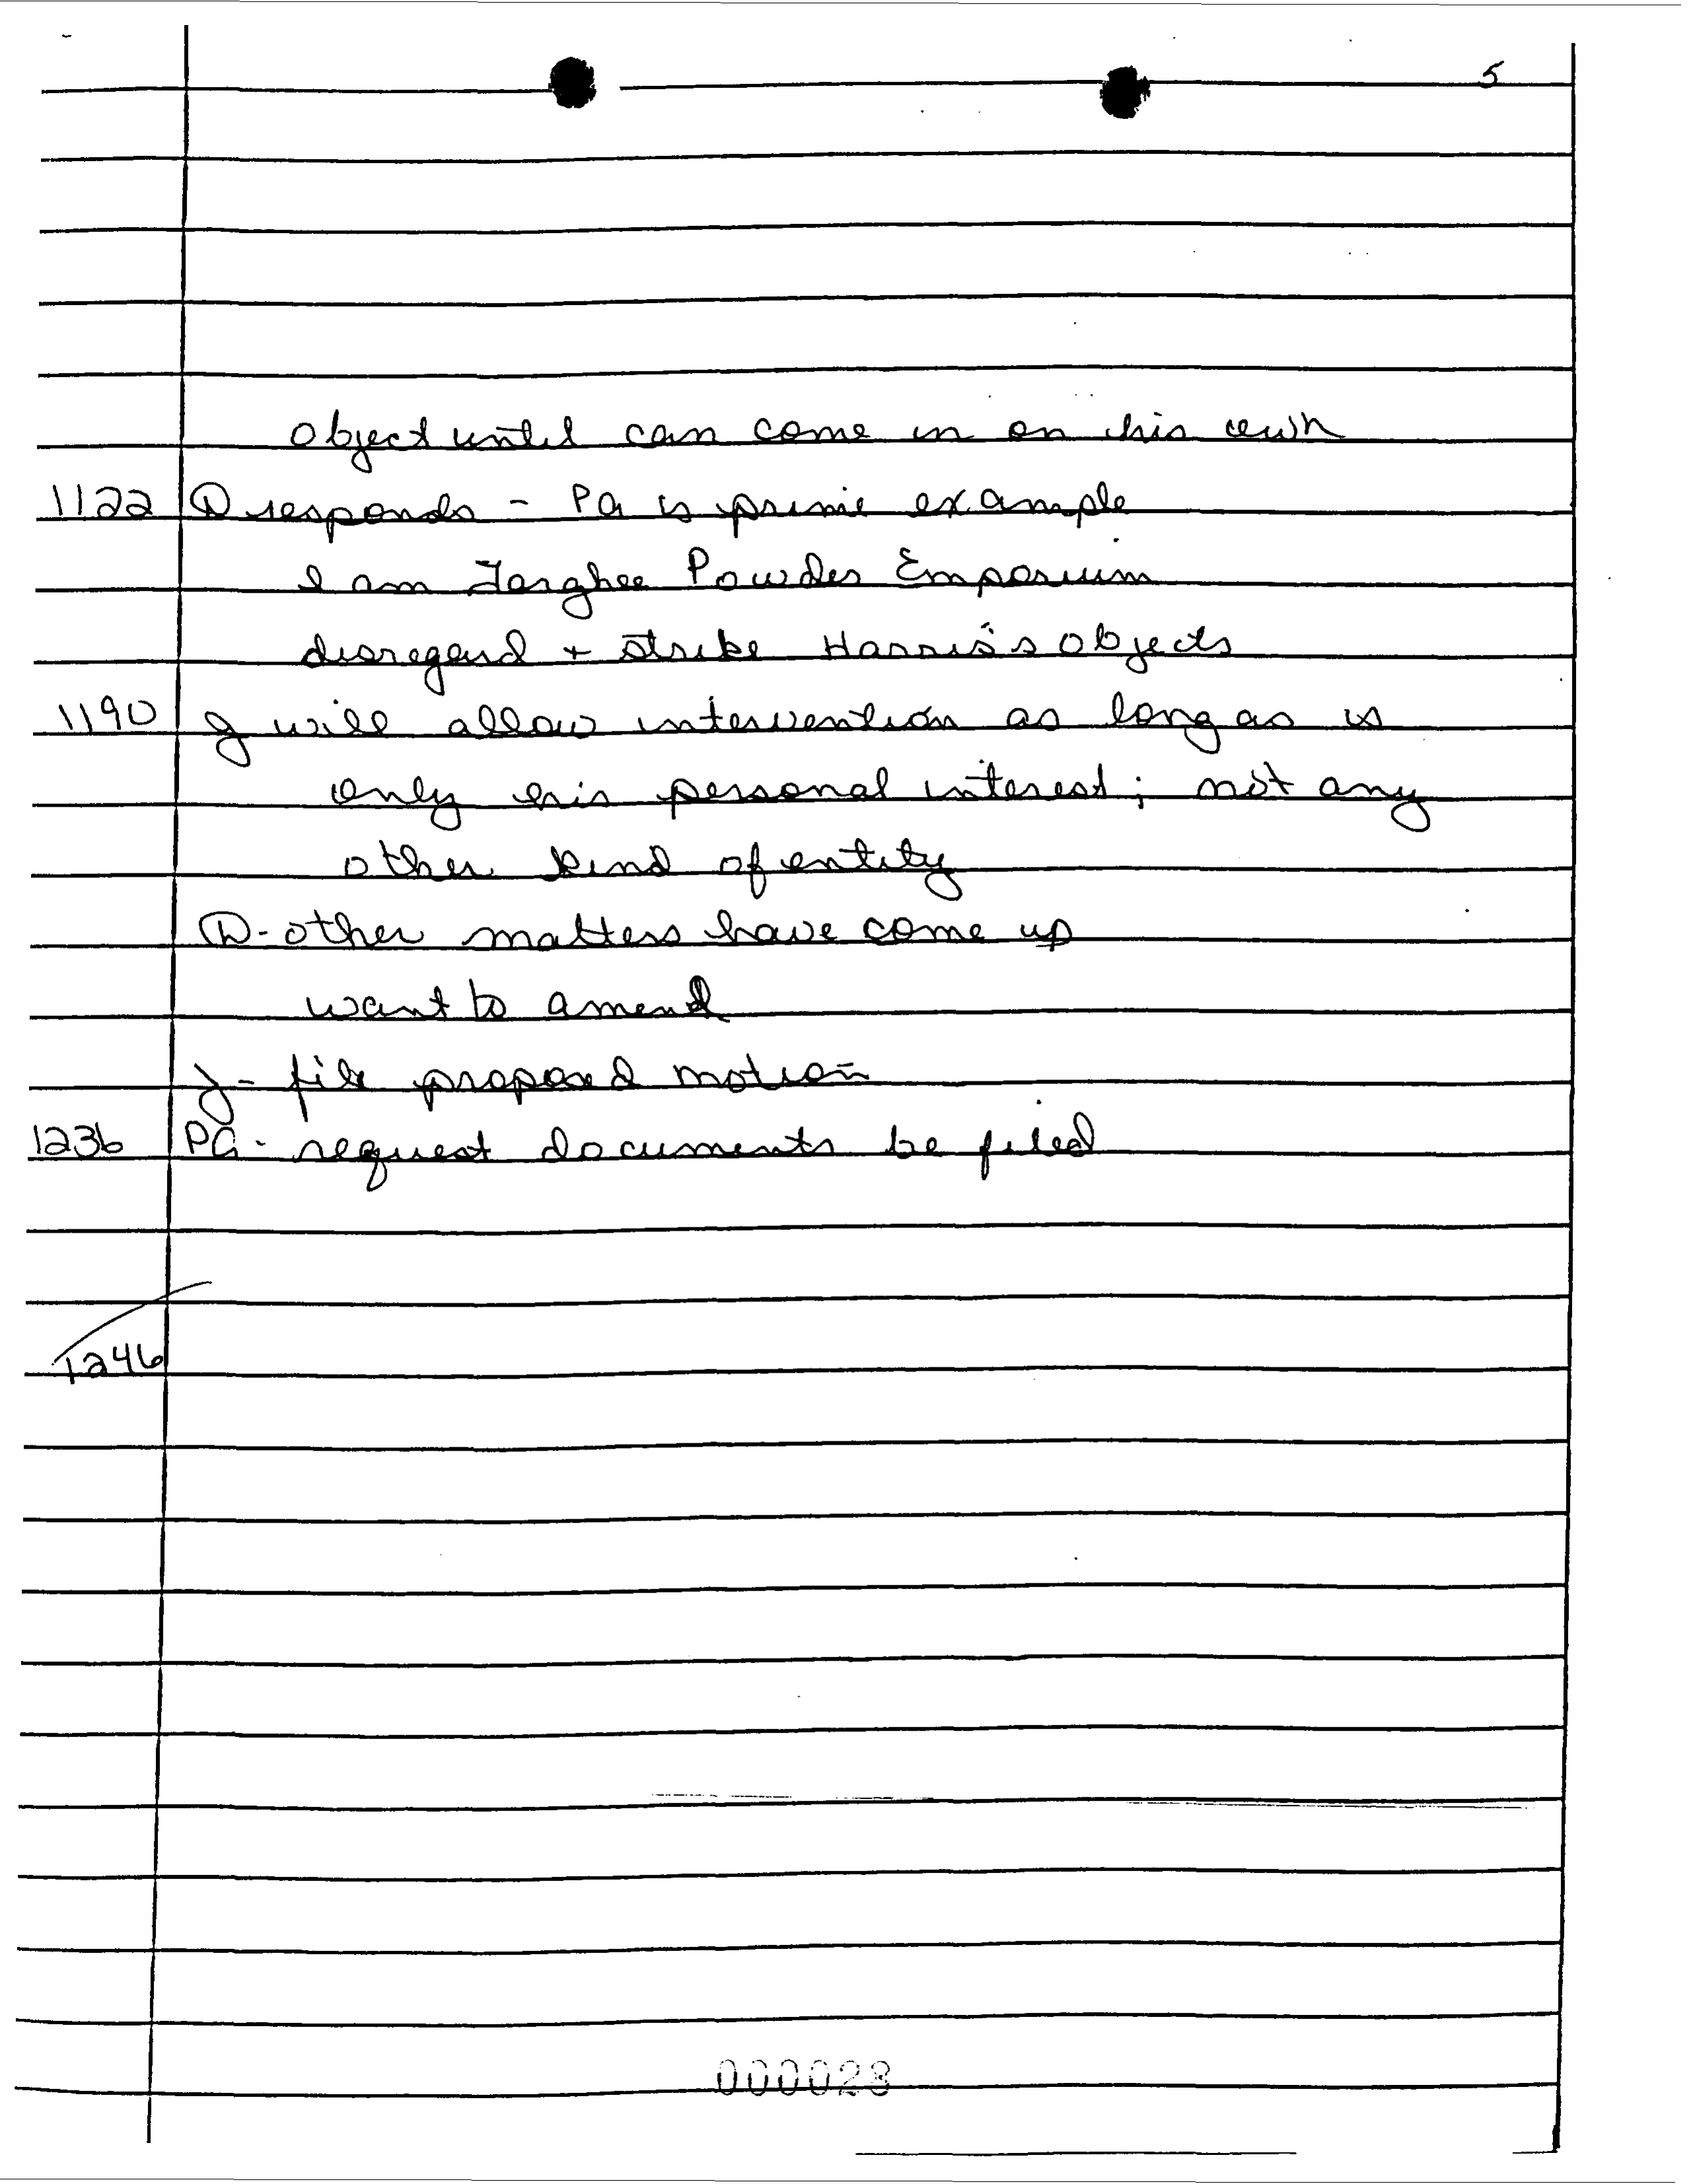 5
object until can come in on his own
1122 Ⓓ responds - PA is prime example
I am Targhee Powder Emporium
disregard + strike Harris's objects
1190 J will allow intervention as long as is
only his personal interest; not any
other kind of entity
Ⓓ - other matters have come up
want to amend
J - file proposed motion
1236 PA - request documents be filed
1246
000028